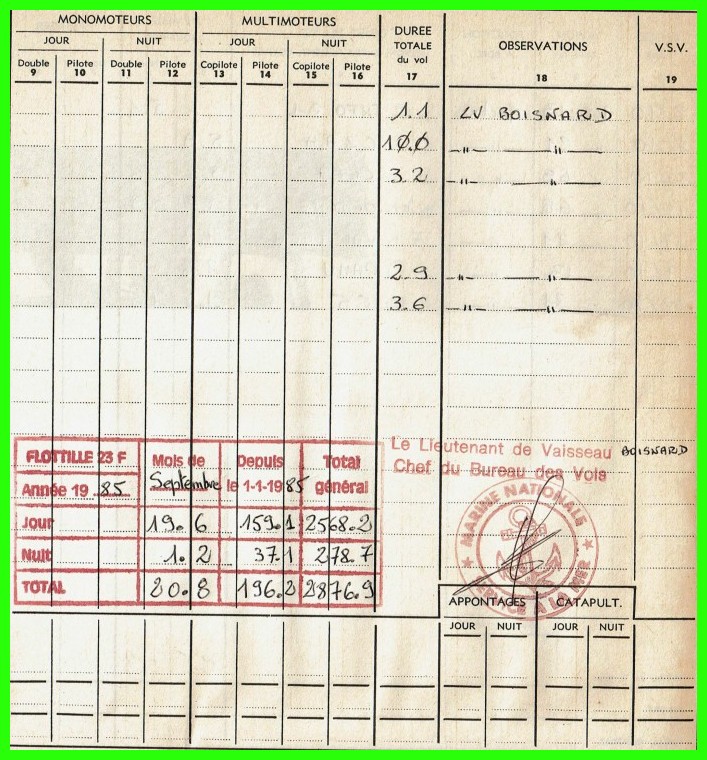 MONOMOTEURS MULTIMOTEURS DUREE TOTALE du vol OBSERVATIONS V.S.V.
JOUR NUIT JOUR NUIT
Double Pilote Double Pilote Copilote Pilote Copilote Pilote
9 10 11 12 13 14 15 16 17 18 19
1.1 LV BOISNARD
10.0 —"— —"—
3.2 —"— —"—
2.9 —"— —"—
3.6 —"— —"—
Le Lieutenant de Vaisseau BOISNARD
Chef du Bureau des Vols
FLOTTILLE 23 F Mois de Depuis Total
Année 19 85 Septembre le 1-1-19 85 général
Jour 19.6 159.1 2568.2
Nuit 1.2 37.1 278.7
TOTAL 20.8 196.2 2876.9
MARINE NATIONALE
SERVICE A LA MER
APPONTAGES CATAPULT.
JOUR NUIT JOUR NUIT